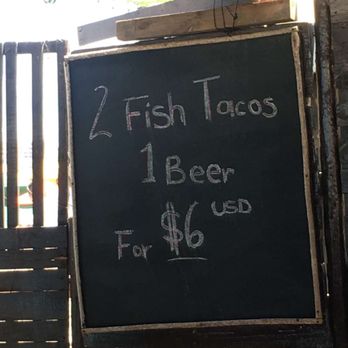 2 Fish Tacos
1 Beer
For $6 USD